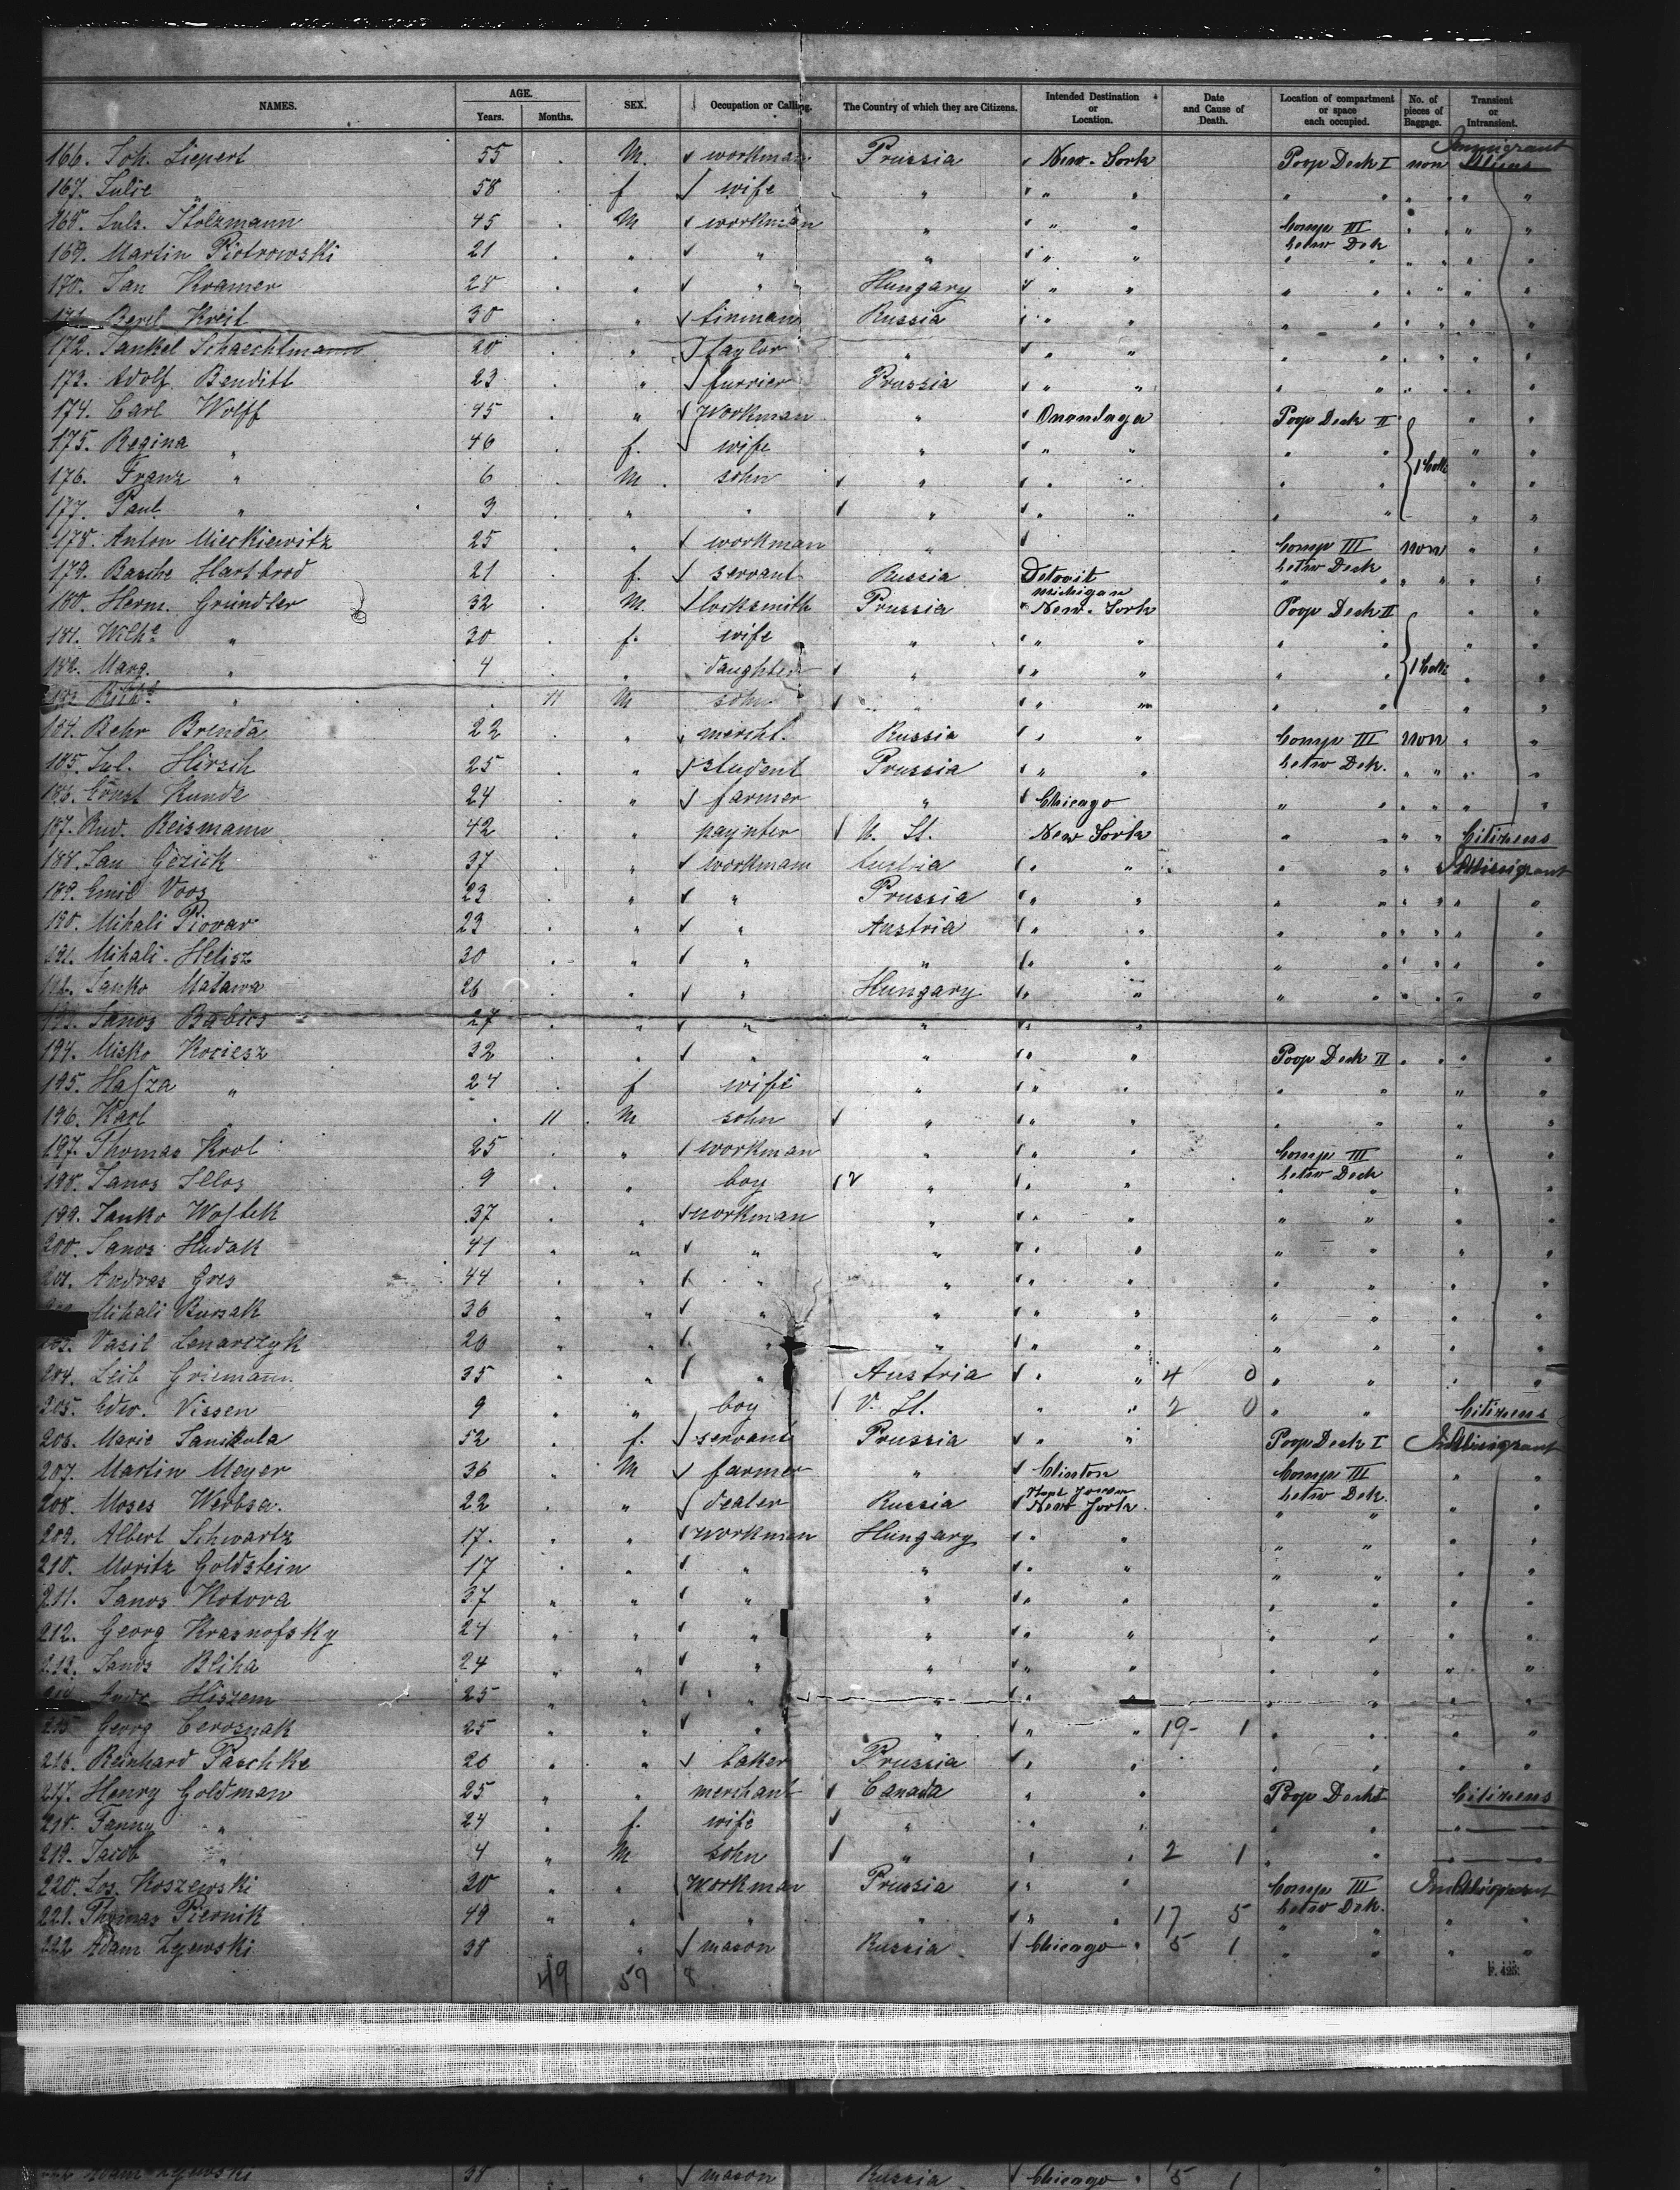 NAMES. AGE. Years. Months. SEX. Occupation or Calling. The Country of which they are Citizens. Intended Destination or Location. Date and Cause of Death. Location of compartment or space each occupied. No. of pieces of Baggage. Transient or Intransient.
166. Joh. Liepert 55 . M. workman Prussia New-York Poop Deck I non Immigrant
167. Julie " 58 . f wife " " " " " " " " "
168. Juls. Stolzmann 45 . M workman " " " Comp III " " " "
169. Martin Piotrowski 21 . " " " " " betw Dek " " " "
170. Jan Kramer 28 . " " " Hungary " " " " " " " "
171. Berel Kreit 30 . " tinman Russia " " " " " " " "
172. Jankel Schaechtmann 20 . " taylor " " " " " " " " "
173. Adolf Benditt 23 . " furrier Prussia " " " " " " " "
174. Carl Wolff 45 . " Workman " Onondaga Poop Deck II " "
175. Regina " 46 . f. wife " " " " " " "
176. Franz " 6 . M. sohn " " " " " 1 Colli " "
177. Paul " 3 . " " " " " " " " "
178. Anton Mieckiewitz 25 . " workman " Comp III non " "
179. Basche Hartbrod 21 . f. servant Russia Detroit Michigan betw Deck " " " "
180. Herm. Gründler 32 . M. locksmith Prussia New-York Poop Deck II " "
181. Wilhe " 30 . f. wife " " " " " " "
182. Marg. " 4 " daughter " " " " " 1 Colli " "
183. Richd " . 11 M sohn " " " " " " "
184. Behr Brenda 22 . " mercht. Russia " " Comp III non " "
185. Jul. Hirsch 25 . " student Prussia " " betw Dek. " " " "
186. Ernst Kunde 24 . " farmer " Chicago " " " " " "
187. Rud. Reismann 42 " paynter U. St. New York " " " " Citizens
188. Jan Gezick 37 " workman Austria " " " " " " Immigrant
189. Emil Voos 23 . " " Prussia " " " " " " " "
190. Mihali Piovar 23 . " " Austria " " " " " " " "
191. Mihali Helisz 30 . " " " " " " " " " " "
192. Janko Matawa 26 . " " Hungary " " " " " " " "
193. Janos Babics 27 . " " " " "
194. Misko Kociesz 32 . " " " " " Poop Deck II " " " "
195. Hasza " 24 . f wife " " " " " " "
196. Karl . 11 . M sohn " " " " " " "
197. Thomas Krol 25 . " workman " " " Comp III " "
198. Janos Illos 9 . " boy " " " betw Deck " "
199. Janko Wojtek 37 " workman " " " " " " "
200. Janos Hudak 41 " " " " " " " " " "
201. Andras Gres 44 " " " " " " " " " "
Mihali Bursak 36 " " " " " " " " " "
203. Vasil Lenarczyk 26 " " " " " " " " " "
204. Leib Griemann 35 " " " Austria " " 4 0 " " " "
205. Edw. Vissen 9 " " boy V. St. " " 2 0 " " Citizens
206. Marie Janikula 52 . f. servant Prussia " " Poop Deck I Immigrant
207. Martin Meyer 36 " M farmer " Clinton Comp III " "
208. Moses Werbsa. 22 . " dealer Russia New York. betw Dek. " "
209. Albert Schwartz 17. . " workman Hungary " " " " " "
210. Moritz Goldstein 17 . " " " " " " " " "
211. Janos Kotova 37 " " " " " " " " " "
212. Georg Krasnofsky 24 " " " " " " " " " "
213. Janos Bliha 24 " " " " " " " " " "
Hiszem 25 " " " " " " " " " "
215 Georg Cerosnak 25 " " " " " " 19- 1 " " " "
216. Reinhard Paschke 26 . " baker Prussia " " " " " "
217. Henry Goldman 25 " " merchant Canada " " Poop Deck I Citizens
218. Fanny " 24 . f. wife " " " " " " "
219. Jacob " 4 " M sohn " " " 2 1 " " " "
220. Jos. Koszewski 20 " " Workman Prussia " " Comp III Immigrant
221. Thomas Piernik 49 " " " " " " 17 5 betw Dek. " "
222 Adam Zyewski 38 " mason Russia Chicago 5 1 " " " "
49 59 8
F. 425.
38 " mason Russia Chicago 5 1